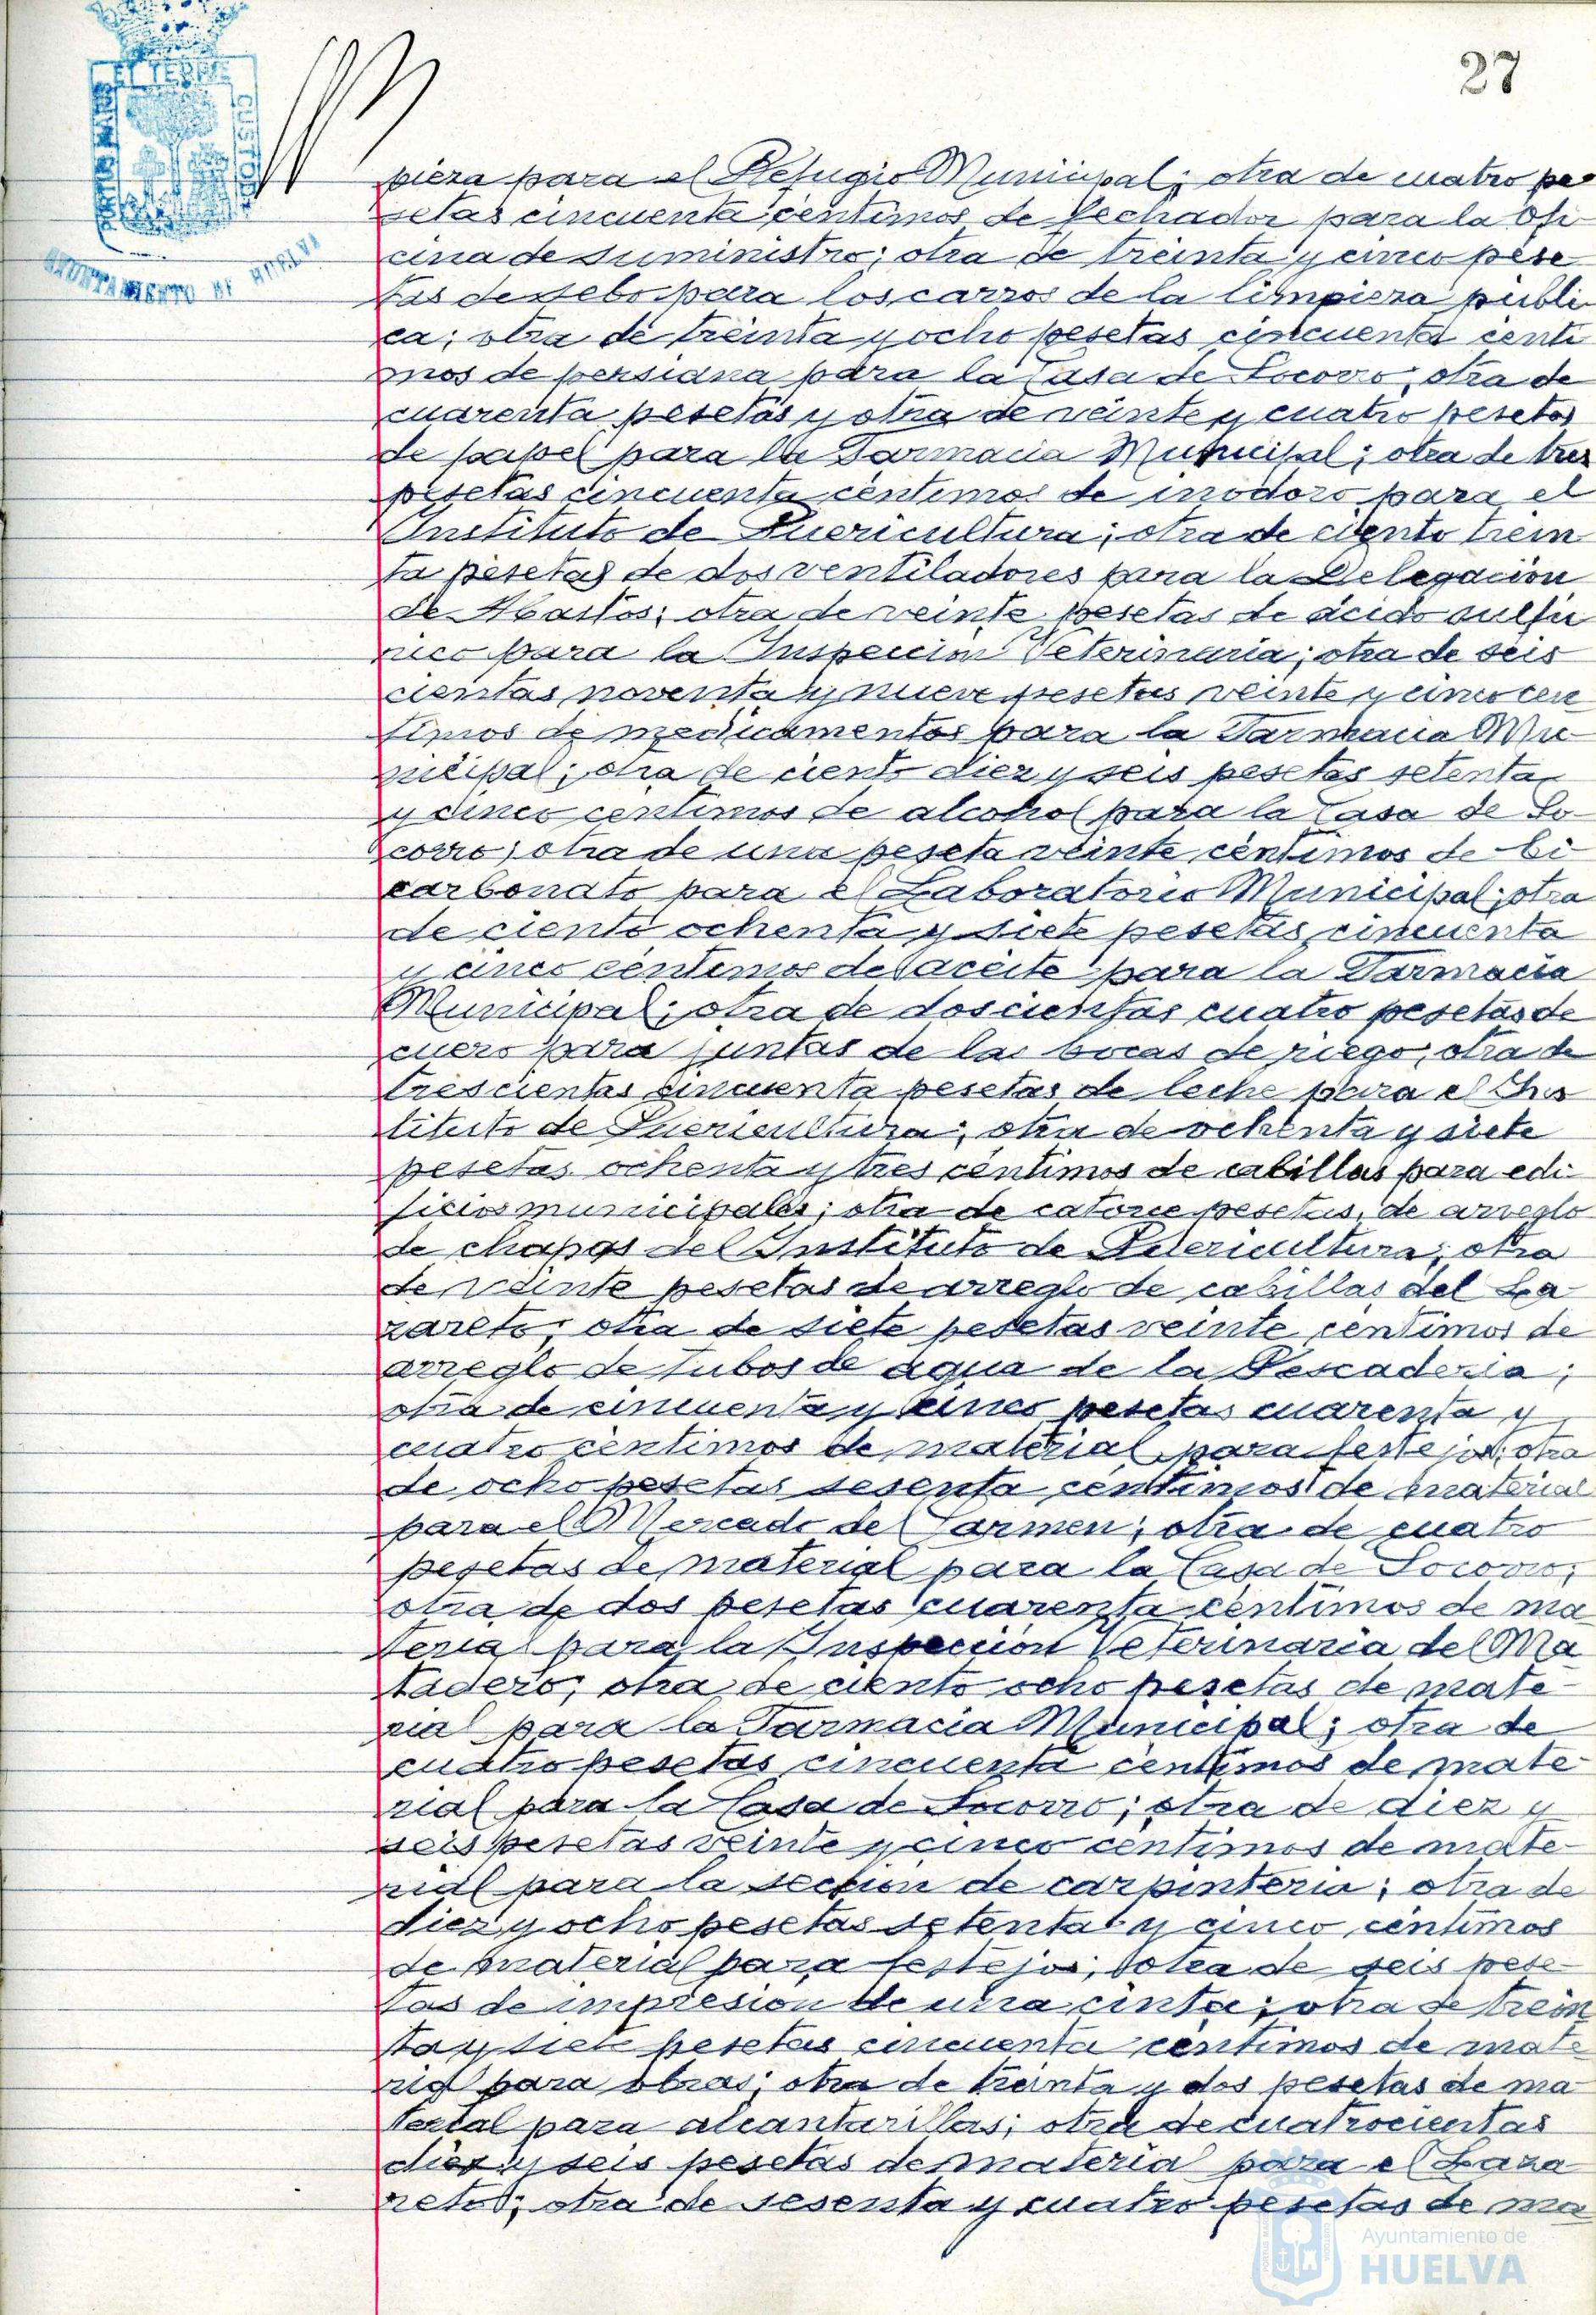 27
ET TERRÆ
PORTUS MARIS
CUSTODI
AYUNTAMIENTO DE HUELVA
pieza para el Refugio Municipal; otra de cuatro pe
setas cincuenta centimos de fechador para la Ofi
cina de Suministro; otra de treinta y cinco pese
tas de sebo para los carros de la limpieza públi
ca; otra de treinta y ocho pesetas cincuenta centi
mos de persiana para la Casa de Socorro; otra de
cuarenta pesetas y otra de veinte y cuatro pesetas
de papel para la Farmacia Municipal; otra de tres
pesetas cincuenta centimos de inodoro para el
Instituto de Puericultura; otra de ciento trein
ta pesetas de dos ventiladores para la Delegación
de Abastos; otra de veinte pesetas de ácido sulfú
rico para la Inspección Veterinaria; otra de seis
cientas noventa y nueve pesetas veinte y cinco cen
timos de medicamentos para la Farmacia Mu-
nicipal; otra de ciento diez y seis pesetas setenta
y cinco centimos de alcohol para la Casa de So-
corro; otra de una peseta veinte céntimos de bi-
carbonato para el Laboratorio Municipal; otra
de ciento ochenta y siete pesetas cincuenta
y cinco céntimos de aceite para la Farmacia
Municipal; otra de doscientas cuatro pesetas de
cuero para juntas de las bocas de riego; otra de
trescientas cincuenta pesetas de leche para el Ins
tituto de Puericultura; otra de ochenta y siete
pesetas ochenta y tres céntimos de cabillas para edi-
ficios municipales; otra de catorce pesetas, de arreglo
de chapas del Instituto de Puericultura; otra
de veinte pesetas de arreglo de cabillas del La-
zareto; otra de siete pesetas veinte centimos de
arreglo de tubos de agua de la Pescaderia;
otra de cincuenta y cinco pesetas cuarenta y
cuatro céntimos de material para festejos; otra
de ocho pesetas sesenta céntimos de material
para el Mercado del Carmen; otra de cuatro
pesetas de material para la Casa de Socorro;
otra de dos pesetas cuarenta céntimos de ma
terial para la Inspección Veterinaria del Ma
tadero; otra de ciento ocho pesetas de mate-
rial para la Farmacia Municipal; otra de
cuatro pesetas cincuenta centimos de mate-
rial para la Casa de Socorro; otra de diez y
seis pesetas veinte y cinco centimos de mate-
rial para la sección de carpinteria; otra de
diez y ocho pesetas setenta y cinco centimos
de material para festejos; otra de seis pese-
tas de impresion de una cinta; otra de trein
ta y siete pesetas cincuenta centimos de mate
rial para obras; otra de treinta y dos pesetas de ma
terial para alcantarillas; otra de cuatrocientas
diez y seis pesetas de material para el Laza
reto; otra de sesenta y cuatro pesetas de ma
Ayuntamiento de
HUELVA